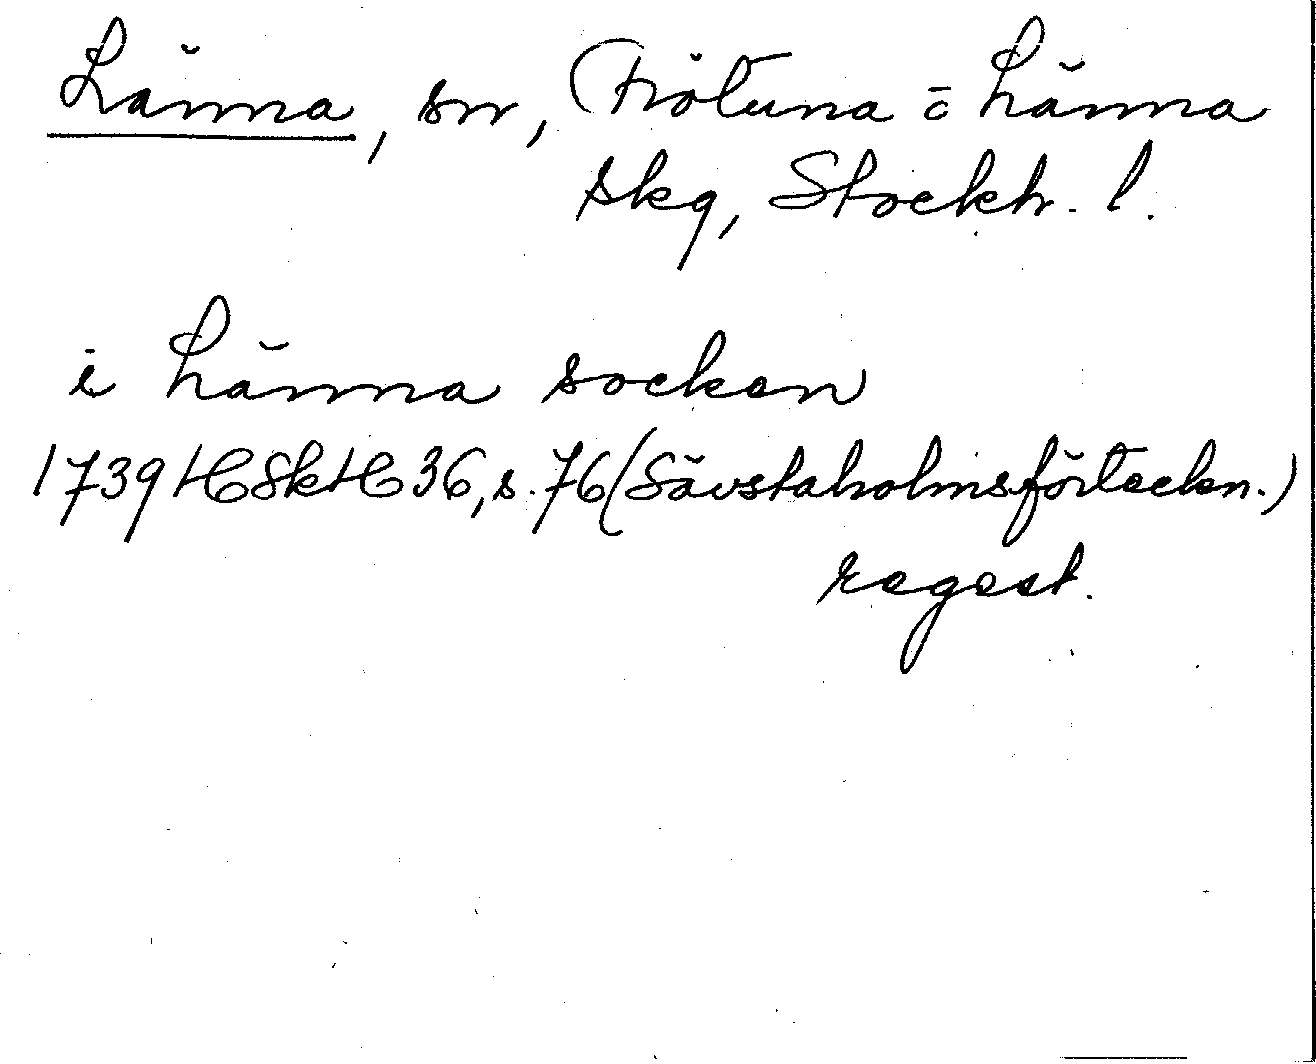 Länna, sn, Frötuna o Länna
skg, Stockh. l.
i Länna socken
1739 HSkH 36, s. 76 (Sävstaholmsförteckn.)
regest.